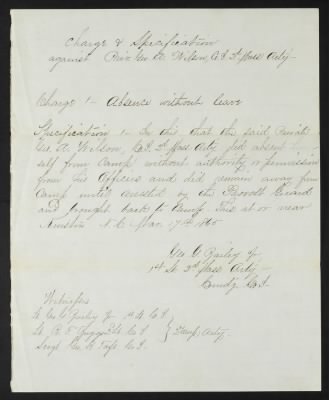 Charge & Specification
against Priv. Geo. A. Wilson, Co I 3d Mass Arty
Charge 1— Absence without leave
Specification 1— In this that the said Private
Geo. A. Wilson, Co I 3d Mass Arty did absent him
self from camp without authority or permission
from his Officers and did remain away from
Camp until arrested by the Provost Guard
and brought back to Camp. This at or near
N.C. Mar. 17th 1865
Geo. G. Bailey Jr.
1st Lt 3d Mass Arty—
Comdg Co I
Witnesses
Lt Geo G. Bailey Jr 1st Lt Co I
Lt B. F. Co I
Sergt Geo. H. Taft Co I
3d Mass Arty